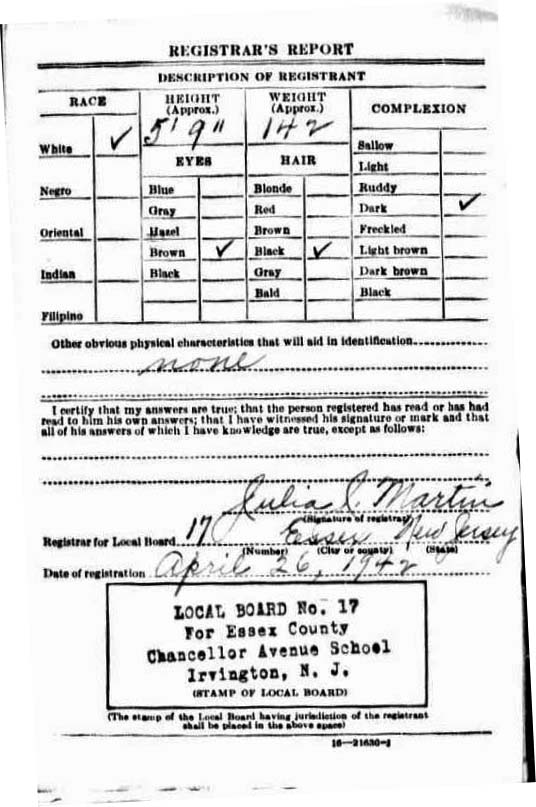 REGISTRAR'S REPORT
DESCRIPTION OF REGISTRANT
RACE
HEIGHT (Approx.)
WEIGHT (Approx.)
COMPLEXION
5' 9"
142
White ✓
EYES
HAIR
Sallow
Light
Negro
Blue
Blonde
Ruddy
Gray
Red
Dark ✓
Oriental
Hazel
Brown
Freckled
Brown ✓
Black ✓
Light brown
Indian
Black
Gray
Dark brown
Bald
Black
Filipino
Other obvious physical characteristics that will aid in identification
none
I certify that my answers are true; that the person registered has read or has had
read to him his own answers; that I have witnessed his signature or mark and that
all of his answers of which I have knowledge are true, except as follows:
Julia I. Martin
(Signature of registrar)
Registrar for Local Board 17 Essex New Jersey
(Number) (City or county) (State)
Date of registration April 26, 1942
LOCAL BOARD No. 17
For Essex County
Chancellor Avenue School
Irvington, N. J.
(STAMP OF LOCAL BOARD)
(The stamp of the Local Board having jurisdiction of the registrant
shall be placed in the above space)
16—21630-1